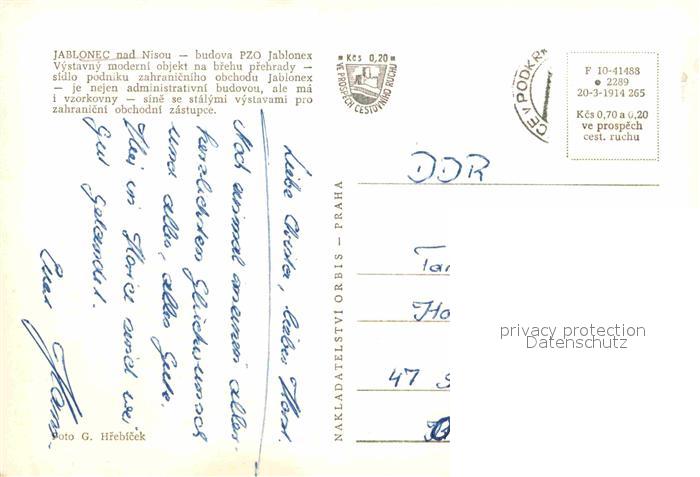 JABLONEC nad Nisou — budova PZO Jablonex
Výstavný moderní objekt na břehu přehrady —
sídlo podniku zahraničního obchodu Jablonex
— je nejen administrativní budovou, ale má
i vzorkovny — síně se stálými výstavami pro
zahraniční obchodní zástupce.
Liebe Christa, lieber Horst.
Noch einmal meinen aller-
herzlichsten Glückwunsch
und alles, alles Gute.
Hier in Horice sind wir
gut gelandet.
Euer
Foto G. Hřebíček
NAKLADATELSTVÍ ORBIS — PRAHA
Kčs 0,20
VE PROSPĚCH CESTOVNÍHO RUCHU
CE V PODKR
F 10-41488
2289
20-3-1914 265
Kčs 0,70 a 0,20
ve prospěch
cest. ruchu
DDR
Ho
47
privacy protection
Datenschutz